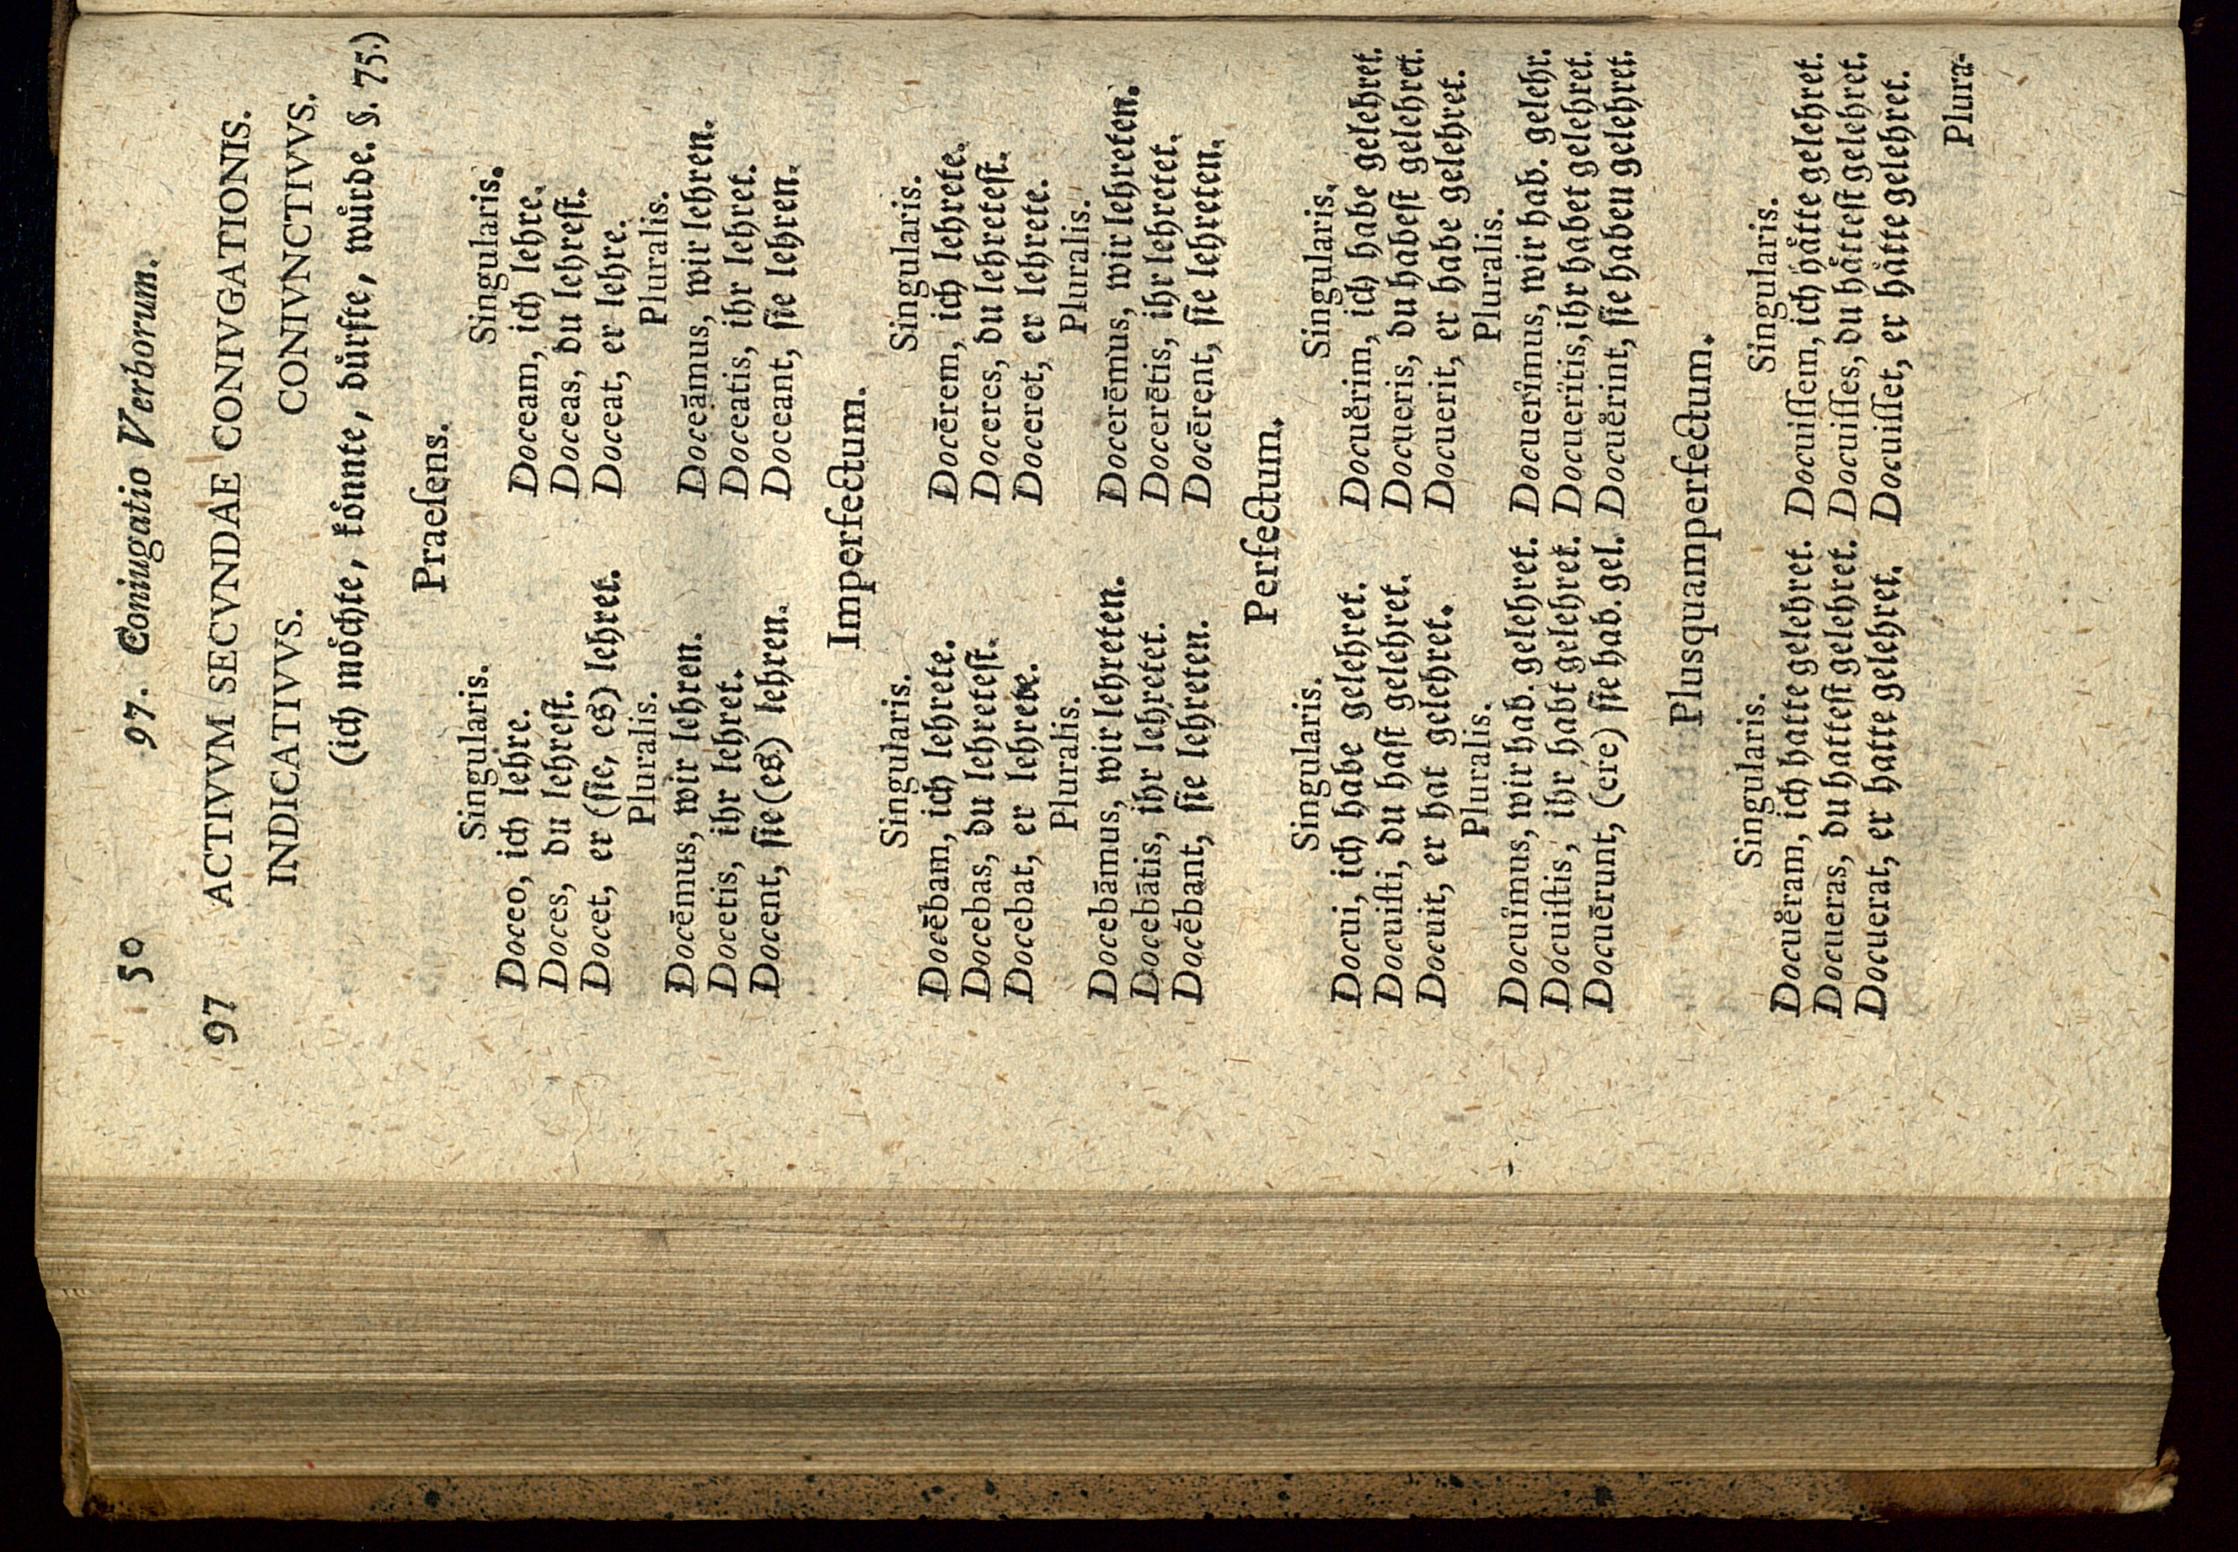 50 97. Coniugatio Verborum.
97 ACTIVVM SECVNDAE CONIVGATIONIS.
INDICATIVVS. CONIVNCTIVVS.
(ich moͤchte, koͤnnte, duͤrfte, wuͤrde. §. 75.)
Praeſens.
Singularis. Singularis.
Doceo, ich lehre. Doceam, ich lehre.
Doces, du lehreſt. Doceas, du lehreſt.
Docet, er (ſie, es) lehret. Doceat, er lehre.
Pluralis. Pluralis.
Docēmus, wir lehren. Doceāmus, wir lehren.
Docetis, ihr lehret. Doceatis, ihr lehret.
Docent, ſie (es) lehren. Doceant, ſie lehren.
Imperfectum.
Singularis. Singularis.
Docēbam, ich lehrete. Docērem, ich lehrete.
Docebas, du lehreteſt. Doceres, du lehreteſt.
Docebat, er lehrete. Doceret, er lehrete.
Pluralis. Pluralis.
Docebāmus, wir lehreten. Docerēmus, wir lehreten.
Docebātis, ihr lehretet. Docerētis, ihr lehretet.
Docēbant, ſie lehreten. Docērent, ſie lehreten.
Perfectum.
Singularis. Singularis.
Docui, ich habe gelehret. Docue̊rim, ich habe gelehret.
Docuiſti, du haſt gelehret. Docueris, du habeſt gelehret.
Docuit, er hat gelehret. Docuerit, er habe gelehret.
Pluralis. Pluralis.
Docui̊mus, wir hab. gelehret. Docuerîmus, wir hab. gelehr.
Docuiſtis, ihr habt gelehret. Docuerïtis, ihr habet gelehret.
Docuērunt, (ere) ſie hab. gel. Docue̊rint, ſie haben gelehret.
Plusquamperfectum.
Singularis. Singularis.
Docue̊ram, ich hatte gelehret. Docuiſſem, ich haͤtte gelehret.
Docueras, du hatteſt gelehret. Docuiſſes, du haͤtteſt gelehret.
Docuerat, er hatte gelehret. Docuiſſet, er haͤtte gelehret.
Plura-